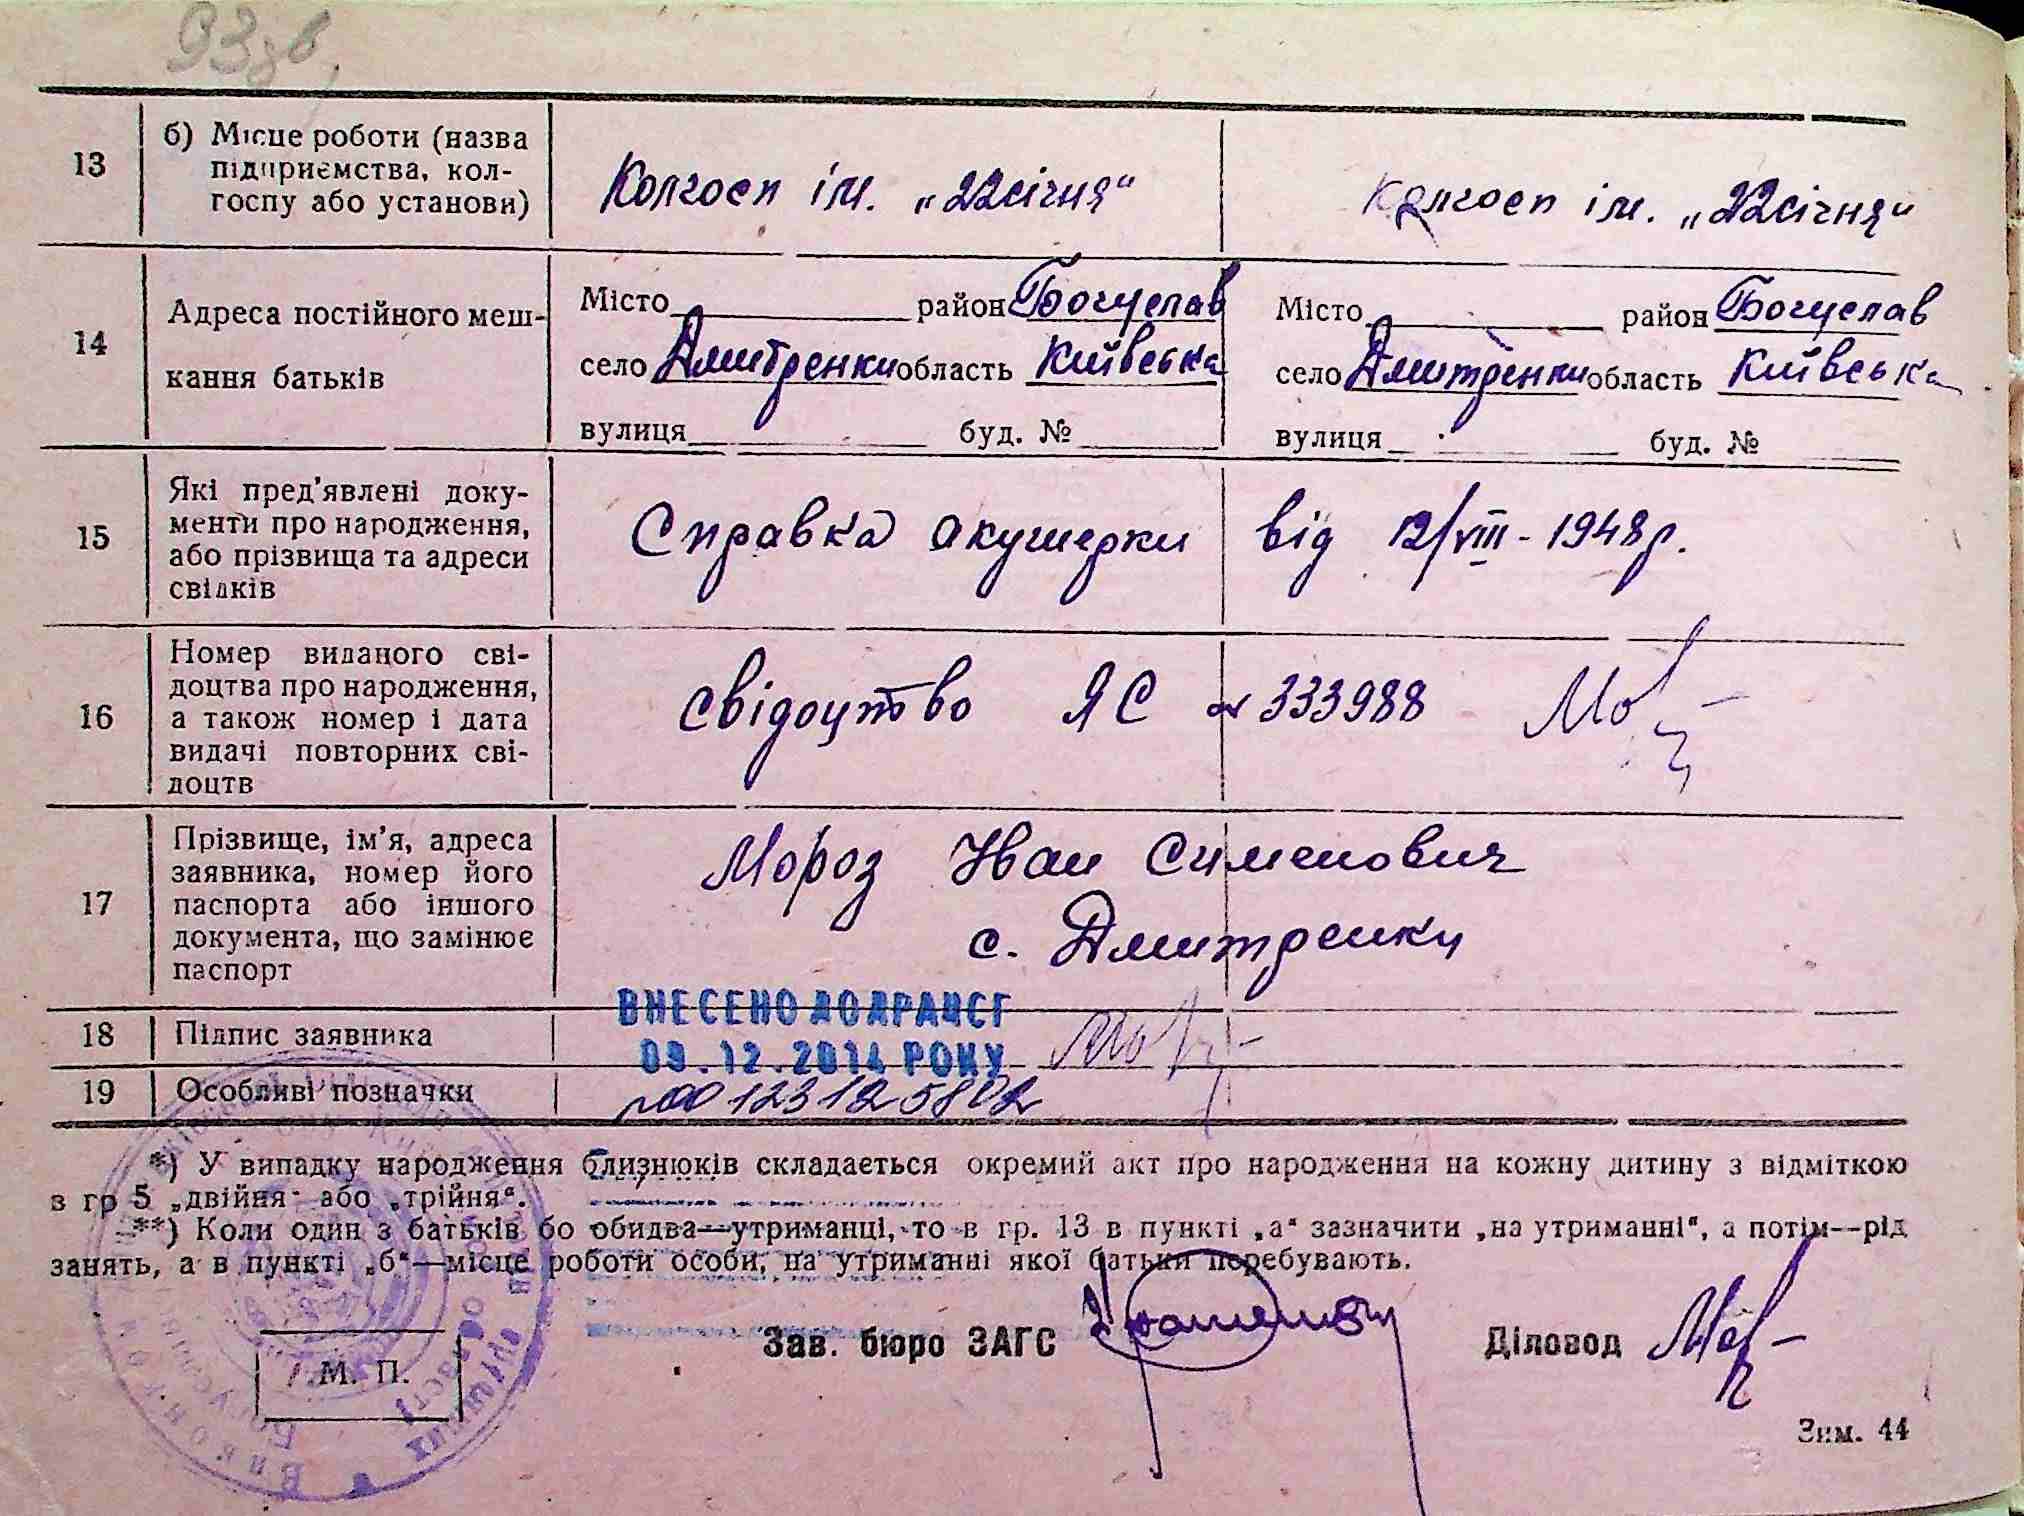 93зв,
13
б) Місце роботи (назва
підприємства, кол-
госпу або установи)
Колгосп ім. „22січня“
Колгосп ім. „22січня“
14
Адреса постійного меш-
кання батьків
Місто район Богуслав
село Дмитренки область Київська
вулиця буд. №
Місто район Богуслав
село Дмитренки область Київська
вулиця буд. №
15
Які пред’явлені доку-
менти про народження,
або прізвища та адреси
свідків
Справка акушерки від 12/VIII-1948р.
16
Номер виданого сві-
доцтва про народження,
а також номер і дата
видачі повторних сві-
доцтв
Свідоцтво ЯС № 333988
17
Прізвище, ім’я, адреса
заявника, номер його
паспорта або іншого
документа, що замінює
паспорт
Мороз Иван Сименович
с. Дмитренки
18
Підпис заявника
ВНЕСЕНО ДО ДРАЦСГ
09.12.2014 РОКУ
19
Особливі позначки
00123125802
*) У випадку народження близнюків складається окремий акт про народження на кожну дитину з відміткою
з гр 5 „двійня“ або „трійня“.
**) Коли один з батьків бо обидва—утриманці, то в гр. 13 в пункті „а“ зазначити „на утриманні“, а потім—рід
занять, а в пункті „б“—місце роботи особи, на утриманні якої батьки перебувають.
М. П.
Зав. бюро ЗАГС
Діловод
Зим. 44